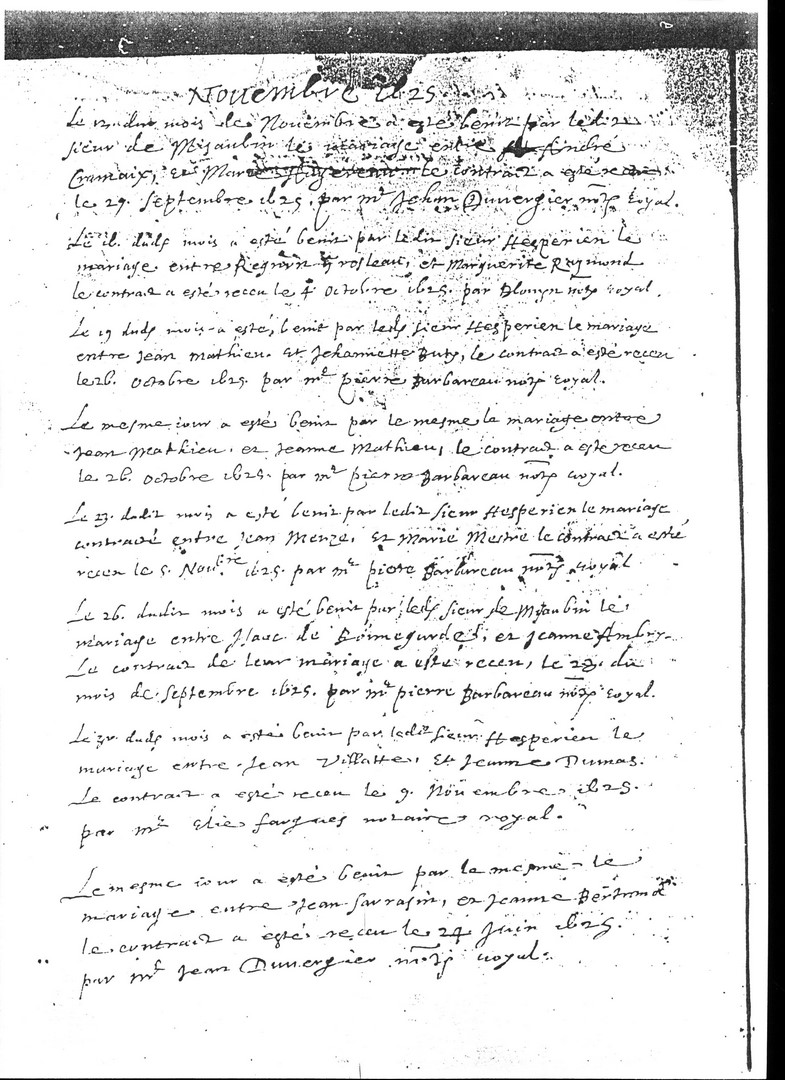 Novembre 1625
Le 12. dud. mois de Novembre a esté benit par ledit
sieur de Misaubin le mariage entre André
Cramaix, et Marie le contract a esté receu
le 29. Septembre 1625. par mr Jehan Duvergier notre royal.
Le 16. dud. mois a esté benit par ledit sieur Hesperien le
mariage entre Grosleau, et Marguerite Raymond
le contract a esté receu le 4 octobre 1625. par notre royal.
Le 19 dud. mois a esté, benit par led. sieur Hesperien le mariage
entre Jean Mathieu. Et Jehannette Buty, le contract a esté receu
le 26. octobre 1625. par mre pierre Barbareau notre royal.
Le mesme iour a esté benit par le mesme le mariage entre
Jean Mathieu. et Jeanne Mathieu, le contract a esté receu
le 26. octobre 1625. par mre pierre Barbareau notre royal.
Le 23. dudit mois a esté benit par ledit sieur Hesperien le mariage
contracté entre Jean Merze. Et Marie Mestre le contract a esté
receu le 5. Novbre 1625. par mre piere Barbareau notre royal
Le 26. dudit mois a esté benit par led. sieur de Misaubin le
mariage entre Isaac de Bonnegarde, et Jeanne Ambry.
Le contract de leur mariage a esté receu, le 23. du
mois de Septembre 1625. par mre pierre Barbareau notre royal.
Le 30. dud. mois a esté benit par ledit sieur Hesperien le
mariage entre Jean Villatte, Et Jeanne Dumas.
Le contract a esté receu le 9. Novembre 1625.
par mre Elie fargues notaire royal.
Le mesme iour a esté benit par le mesme le
mariage entre Jean Sarrasin, et Jeanne Bertrand
le contract a esté receu le 24 Juin 1625.
par mre Jean Duvergier notre royal.